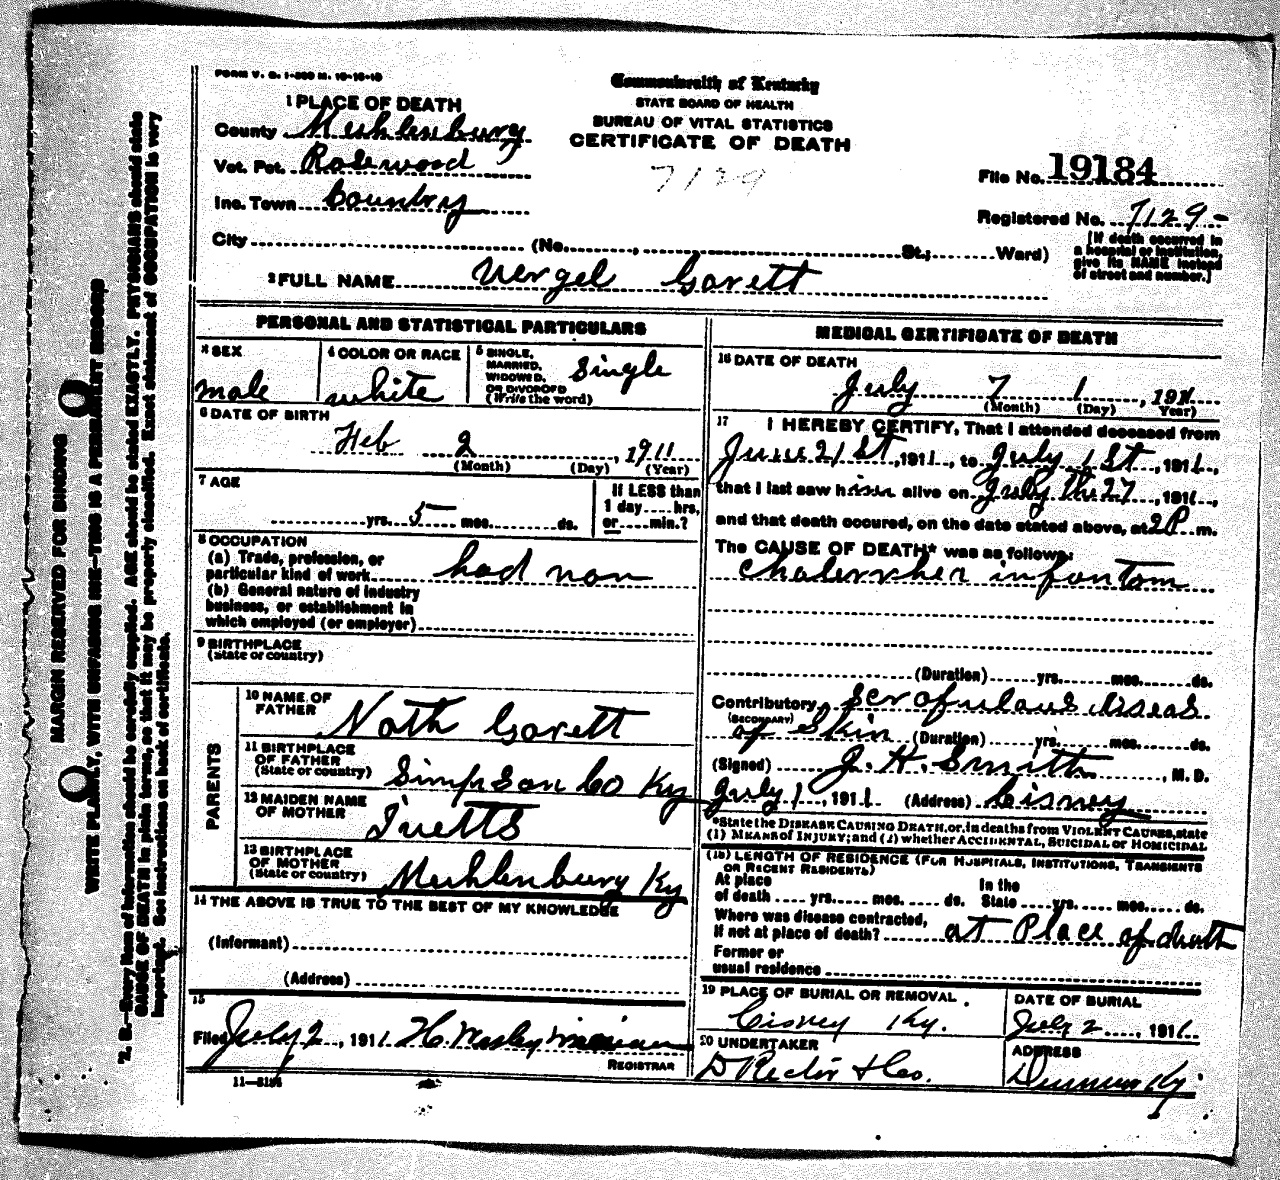 FORM V. S. 1-200 M. 10-15-10
Commonwealth of Kentucky
STATE BOARD OF HEALTH
BUREAU OF VITAL STATISTICS
CERTIFICATE OF DEATH
7129
1 PLACE OF DEATH
County Muhlenburg
Vot. Pct. Rosewood
Inc. Town Country
City (No. , St.; Ward)
File No. 19184
Registered No. 7129-
[If death occurred in
a hospital or institution,
give its NAME instead
of street and number.]
2 FULL NAME Vergel Garett
PERSONAL AND STATISTICAL PARTICULARS
3 SEX
male
4 COLOR OR RACE
white
5 SINGLE,
MARRIED,
WIDOWED,
OR DIVORCED
(Write the word)
Single
6 DATE OF BIRTH
Feb 2 , 1911
(Month) (Day) (Year)
7 AGE
yrs. 5 mos. ds.
If LESS than
1 day hrs,
or min.?
8 OCCUPATION
(a) Trade, profession, or
particular kind of work had non
(b) General nature of industry
business, or establishment in
which employed (or employer)
9 BIRTHPLACE
(State or country)
PARENTS
10 NAME OF
FATHER
Nath Garett
11 BIRTHPLACE
OF FATHER
(State or country)
Simpson Co Ky
12 MAIDEN NAME
OF MOTHER
13 BIRTHPLACE
OF MOTHER
(State or country)
Muhlenburg Ky
14 THE ABOVE IS TRUE TO THE BEST OF MY KNOWLEDGE
(Informant)
(Address)
15
Filed July 2, 1911 H. Wesley
REGISTRAR
11-3184
MEDICAL CERTIFICATE OF DEATH
16 DATE OF DEATH
July 7 1 , 1911
(Month) (Day) Year)
17 I HEREBY CERTIFY, That I attended deceased from
June 21 St, 1911, to July 1 St, 1911,
that I last saw him alive on July the 27, 1911,
and that death occured, on the date stated above, at 2P m.
The CAUSE OF DEATH* was as follows:
infantom
(Duration) yrs. mos. ds.
Contributory scrofulous diseas
(SECONDARY)
of Skin (Duration) yrs. mos. ds.
(Signed) J. H. Smith, M. D.
July 1, 1911 (Address) Cisney
*State the DISEASE CAUSING DEATH, or, in deaths from VIOLENT CAUSES, state
(1) MEANS of INJURY; and (2) whether ACCIDENTAL, SUICIDAL or HOMICIDAL
(18) LENGTH OF RESIDENCE (FOR HOSPITALS, INSTITUTIONS, TRANSIENTS
OR RECENT RESIDENTS)
At place
of death yrs. mos. ds.
In the
State yrs. mos. ds.
Where was disease contracted,
if not at place of death? at Place of death
Former or
usual residence
19 PLACE OF BURIAL OR REMOVAL
Cisney Ky.
DATE OF BURIAL
July 2, 1911
20 UNDERTAKER
D Rector & Co.
ADDRESS
Ky
MARGIN RESERVED FOR BINDING
WRITE PLAINLY, WITH UNFADING INK—THIS IS A PERMANENT RECORD
N. B.—Every item of information should be carefully supplied. AGE should be stated EXACTLY. PHYSICIANS should state
CAUSE OF DEATH in plain terms, so that it may be properly classified. Exact statement of OCCUPATION is very
important. See instructions on back of certificate.